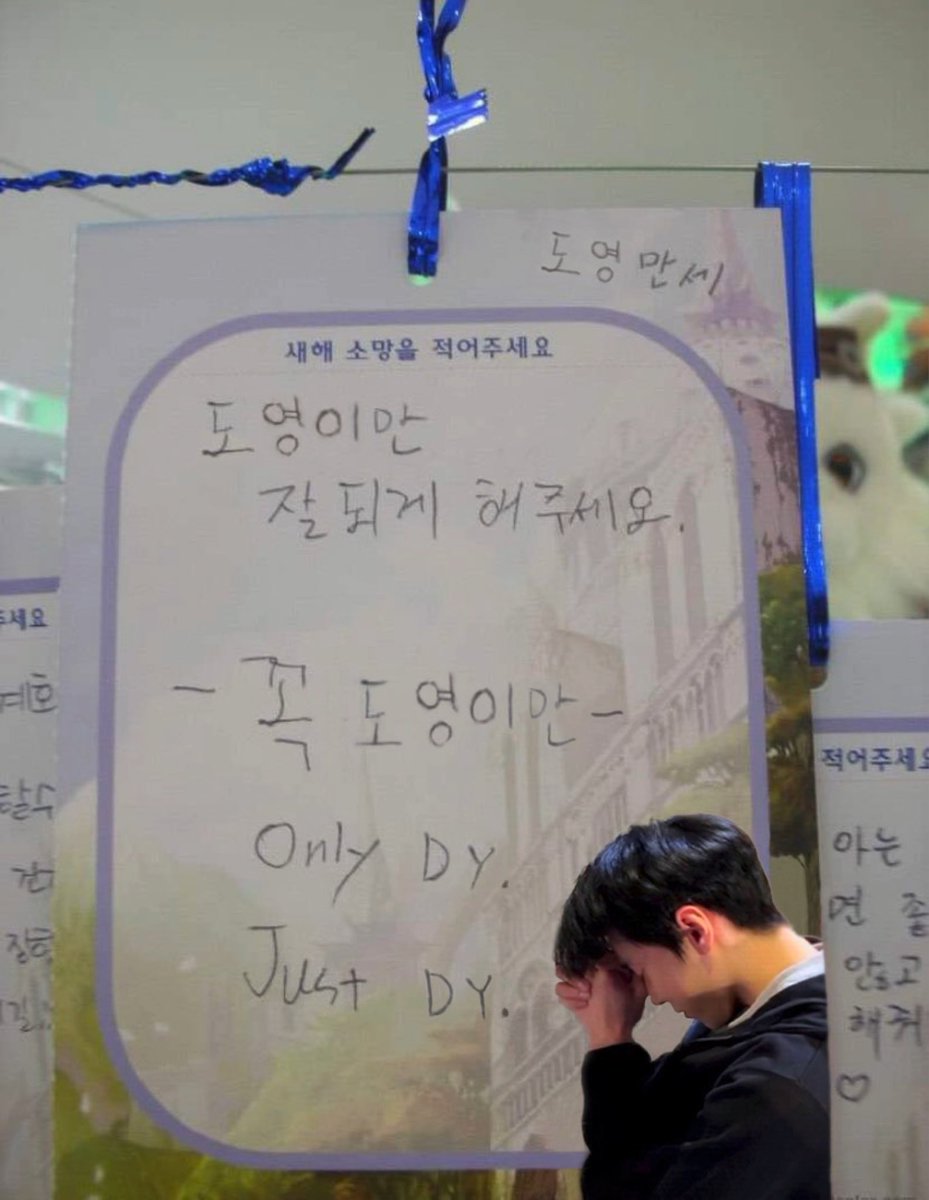 도영만세
새해 소망을 적어주세요
도영이만
잘되게 해주세요.
- 꼭 도영이만 -
Only DY.
Just DY.
주세요
계획
장학
적어주세요
아는
면 좋
않고
해줘
♡